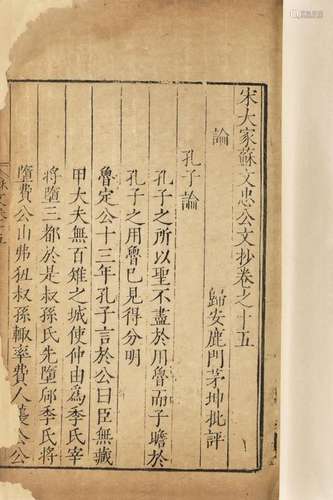 宋大家蘇文忠公文抄卷之十五
歸安鹿門茅坤批評
論
孔子論
孔子之所以聖不盡於用魯而子瞻於
孔子之用魯已見得分明
魯定公十三年孔子言於公曰臣無藏
甲大夫無百雉之城使仲由為季氏宰
將墮三都於是叔孫氏先墮郈季氏將
墮費公山弗狃叔孫輒率費人襲公公